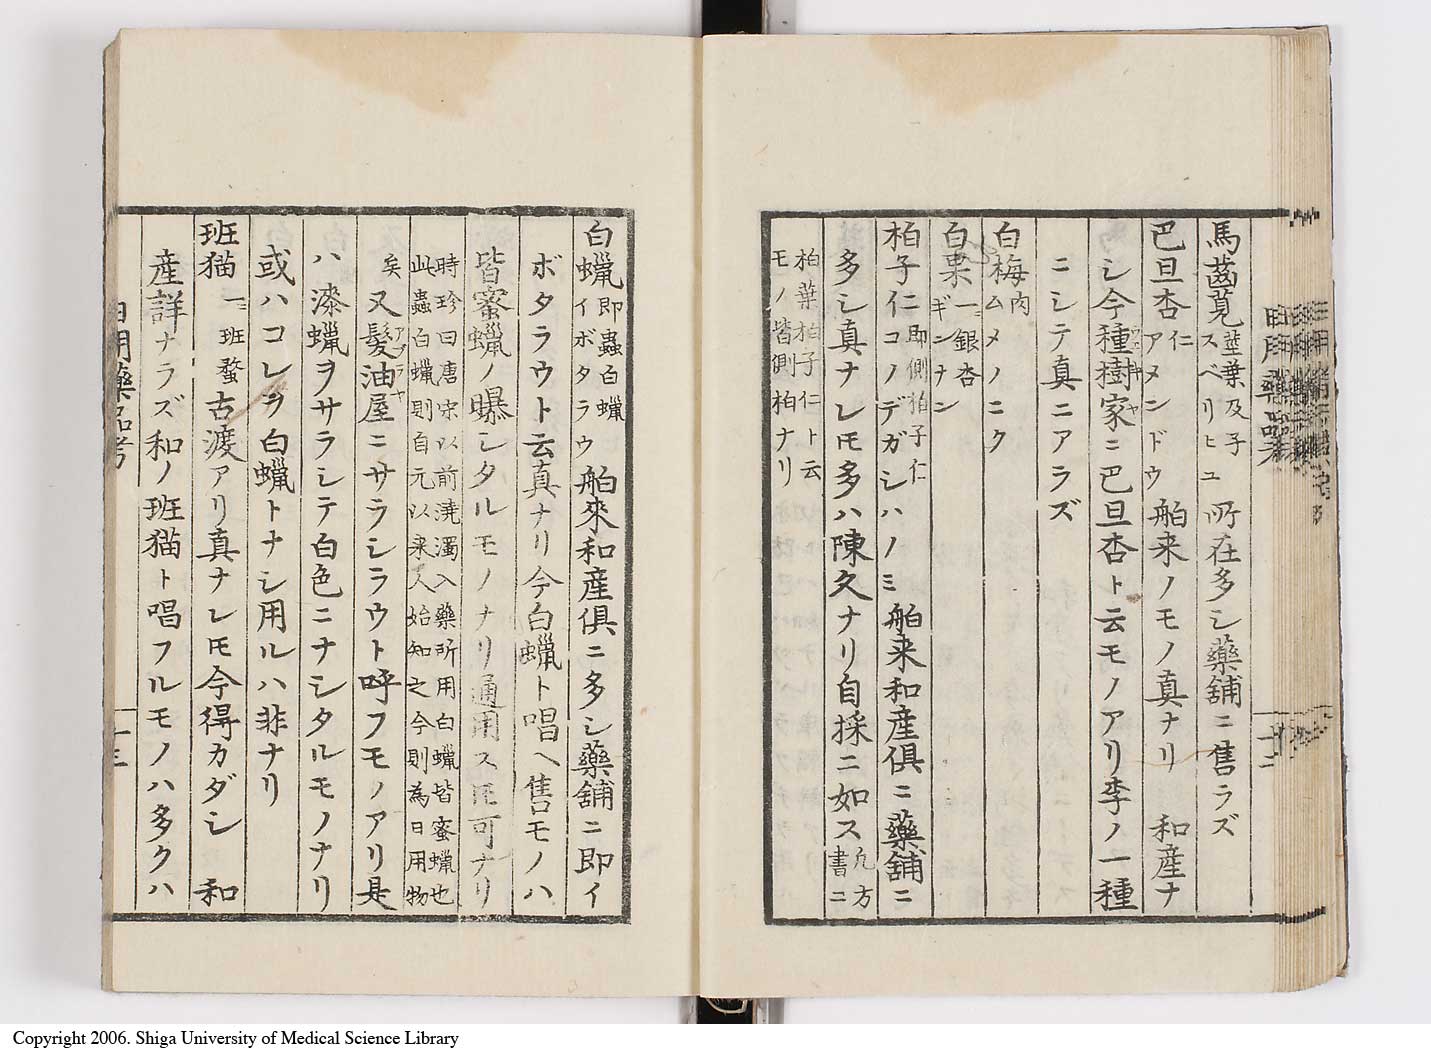 馬齒莧 莖葉及子 スベリヒユ 所在多シ藥舖ニ售ラズ
巴旦杏 仁 アメンドウ 舶来ノモノ真ナリ 和産ナ
シ今種樹家ニ巴旦杏ト云モノアリ李ノ一種
ニシテ真ニアラズ
白梅 肉 ムメノニク
白果 一ニ銀杏 ギンナン
柏子仁 即側柏子仁 コノデガシハノミ 舶来和産俱ニ藥舖ニ
多シ真ナレ𪜈多ハ陳久ナリ自採ニ如ス 凡方書ニ
柏葉柏子仁ト云
モノ皆側柏ナリ
白蠟 即蟲白蠟 イボタラウ 舶來和産俱ニ多シ藥舖ニ即イ
ボタラウト云真ナリ今白蠟ト唱ヘ售モノハ
皆蜜蠟ノ曝シタルモノナリ通用ス𪜈可ナリ
時珍曰唐宋以前澆濁入藥所用白蠟皆蜜蠟也
此蟲白蠟則自元以来人始知之今則為日用物
矣 又髮油屋ニサラシラウト呼フモノアリ是
ハ漆蠟ヲサラシテ白色ニナシタルモノナリ
或ハコレヲ白蠟トナシ用ルハ非ナリ
班猫 一ニ班蝥 古渡アリ真ナレ𪜈今得カダシ 和
産詳ナラズ和ノ班猫ト唱フルモノハ多クハ
日用藥品考
十三
Copyright 2006. Shiga University of Medical Science Library